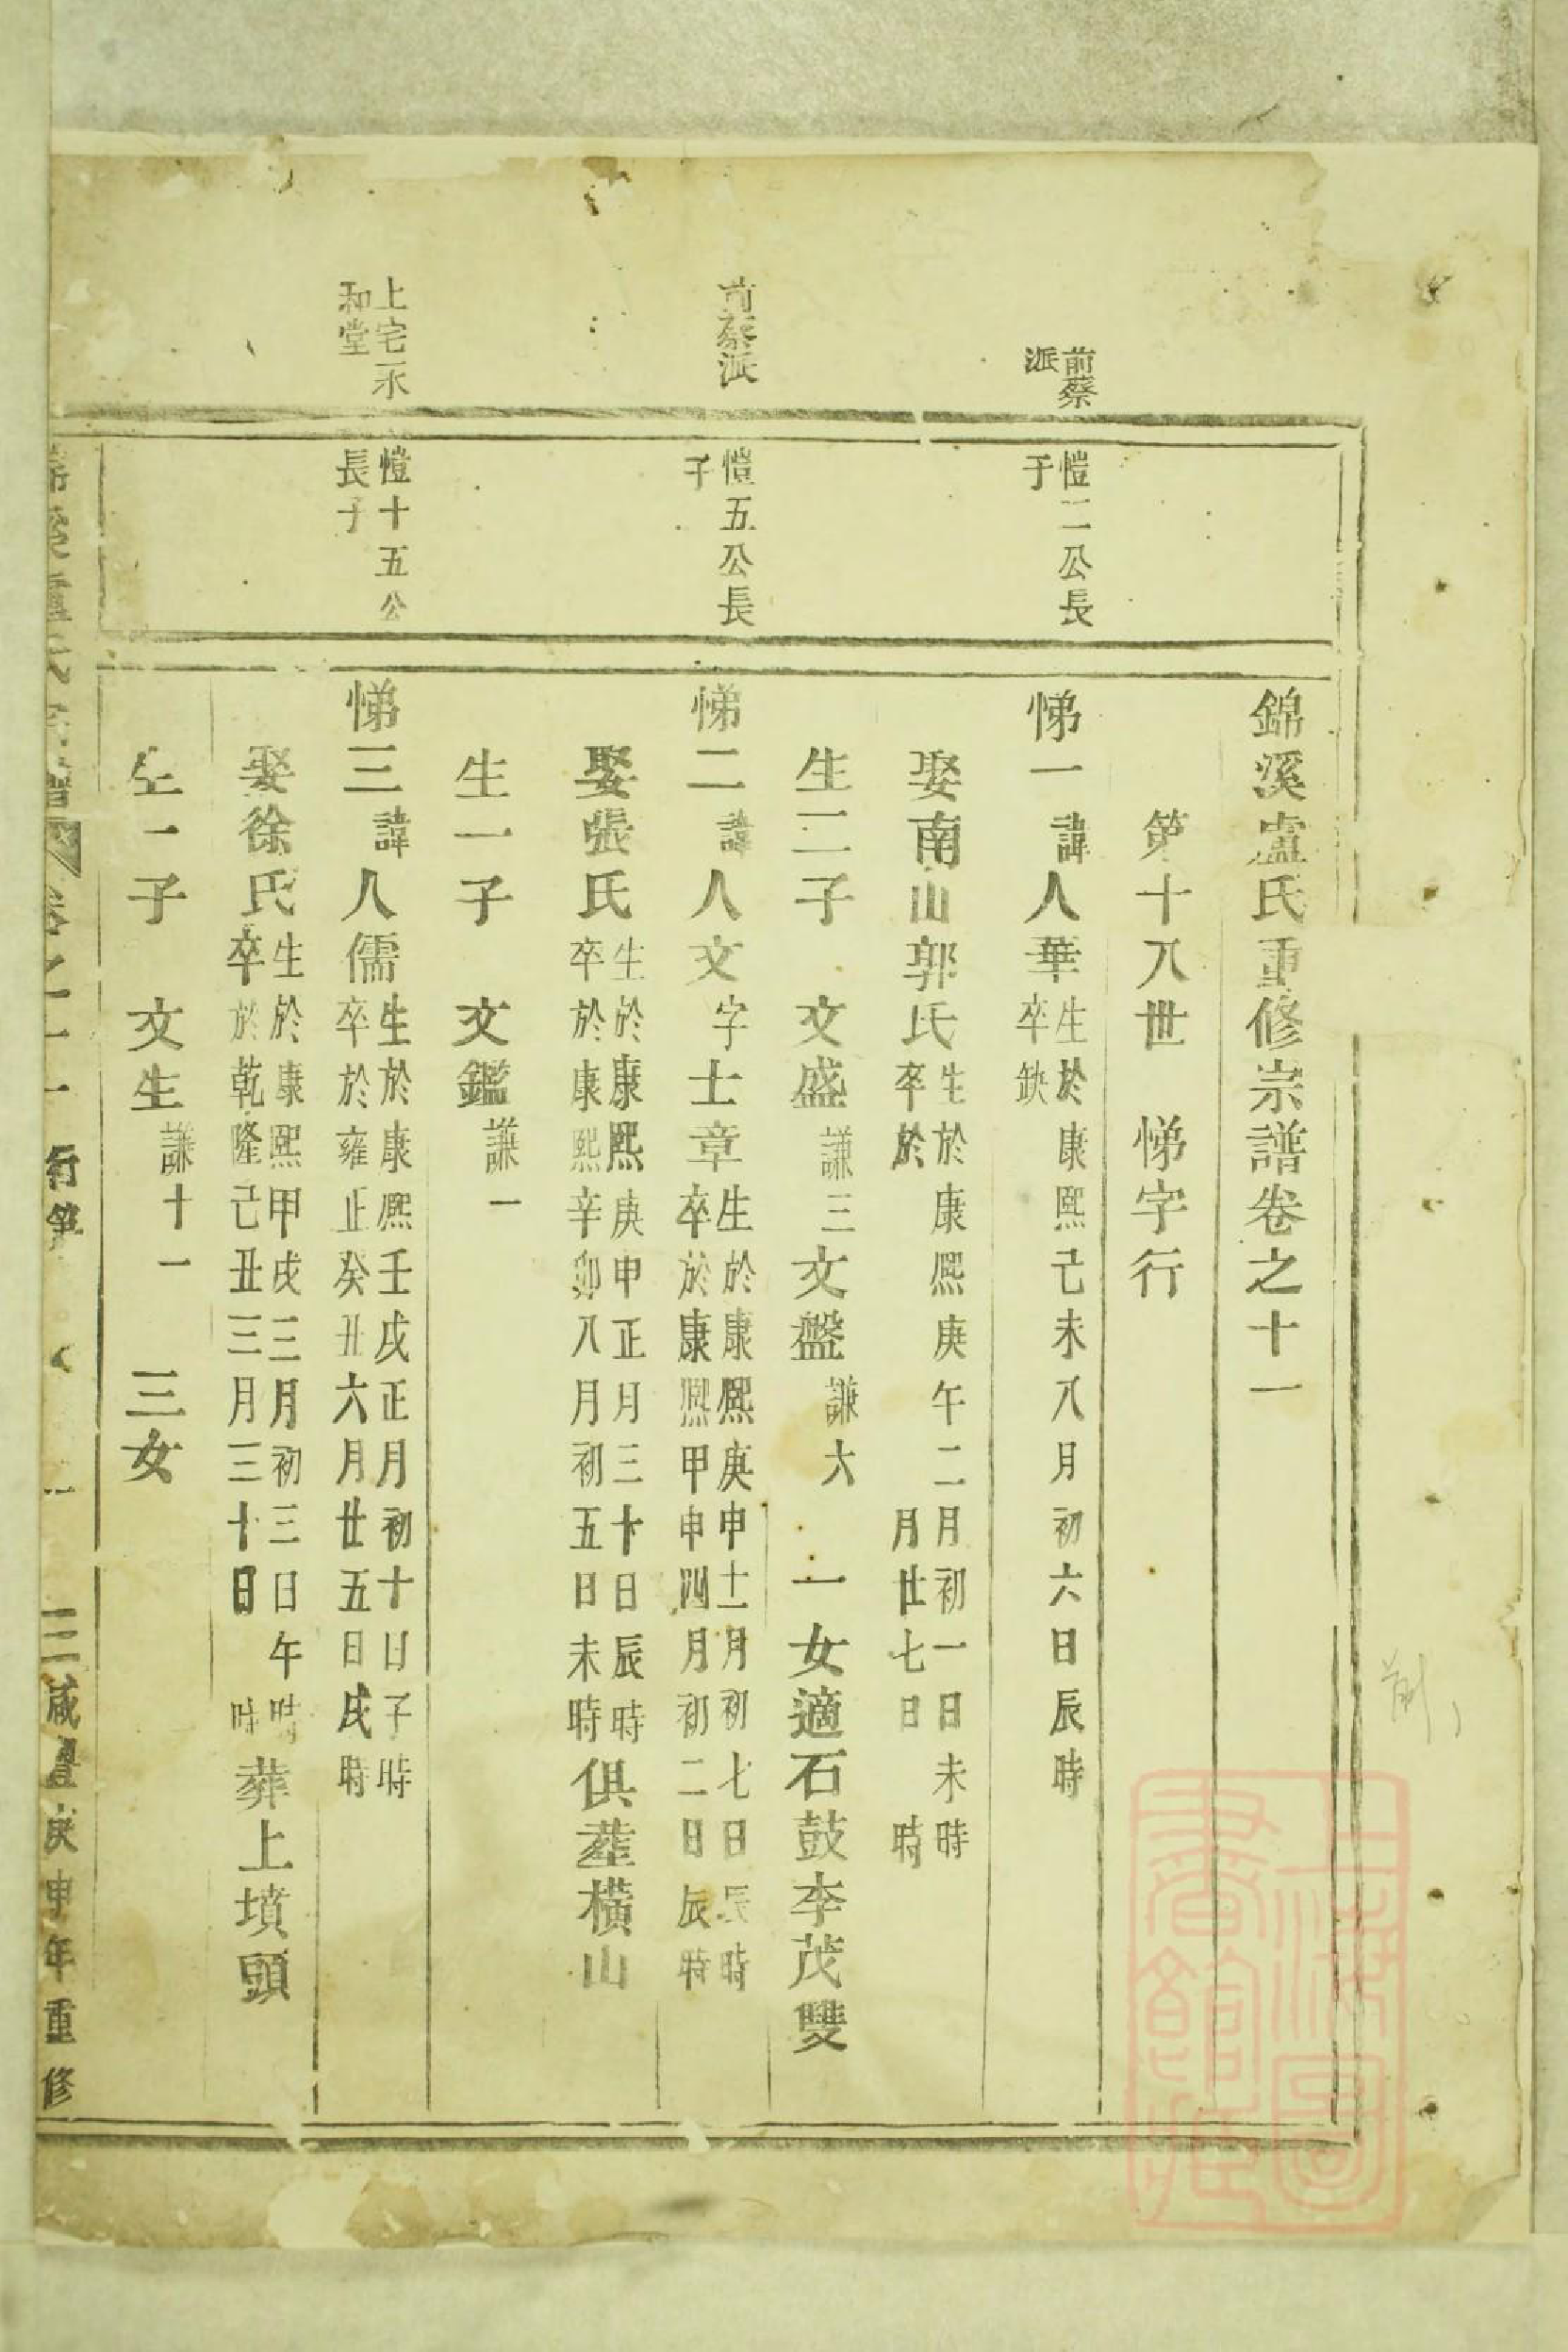 錦溪盧氏重修宗譜卷之十一
第十八世　悌字行
前蔡
派
愷二公長
子
悌一諱人華生於康熙己未八月初六日辰時
卒缺
娶南山郭氏生於康熙庚午二月初一日未時
卒於　月廿七日　時
生二子　文盛謙三文盤謙六　一女適石鼓李茂雙
前蔡派
愷五公長
子
悌二諱人文字士章生於康熙庚申十二月初七日辰時
卒於康熙甲申四月初二日辰時
娶張氏生於康熙庚申正月三十日辰時
卒於康熙辛卯八月初五日未時
俱塟橫山
生一子　文鑑謙一
上宅永
和堂
愷十五公
長子
悌三諱人儒生於康熙壬戌正月初十日子時
卒於雍正癸丑六月廿五日戌時
娶徐氏生於康熙甲戌三月初三日午時
卒於乾隆己丑三月三十日　時
葬上墳頭
生一子　文生謙十一　三女
盧氏宗譜　卷之十一　行第　一　三咸豐庚申年重修
上海圖書館藏